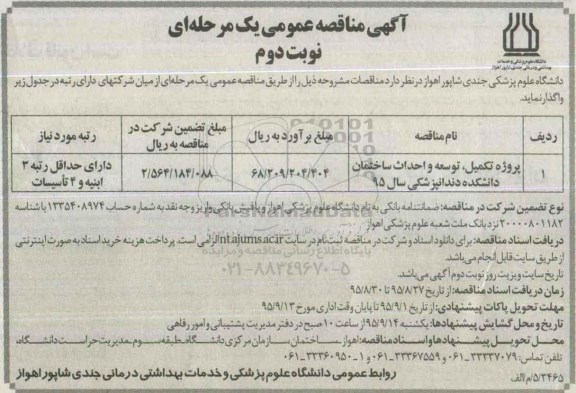 آگهی مناقصه عمومی یک مرحله‌ای
نوبت دوم
دانشگاه علوم پزشکی و خدمات
بهداشتی و درمانی جندی شاپور اهواز
دانشگاه علوم پزشکی جندی شاپور اهواز در نظر دارد مناقصات مشروحه ذیل را از طریق مناقصه عمومی یک مرحله‌ای از میان شرکتهای دارای رتبه در جدول زیر
واگذار نماید.
ردیف	نام مناقصه	مبلغ برآورد به ریال	مبلغ تضمین شرکت در مناقصه به ریال	رتبه مورد نیاز
۱	پروژه تکمیل، توسعه و احداث ساختمان دانشکده دندانپزشکی سال ۹۵	۶۸/۲۰۹/۲۰۴/۴۰۴	۲/۵۶۴/۱۸۴/۰۸۸	دارای حداقل رتبه ۳ ابنیه و ۴ تأسیسات
نوع تضمین شرکت در مناقصه: ضمانتنامه بانکی به نام دانشگاه علوم پزشکی اهواز و یا فیش بانکی واریز وجه نقد به شماره حساب ۱۳۳۵۴۰۸۹۷۴ با شناسه
۲۰۰۰۰۸۰۱۱۸۲ نزد بانک ملت شعبه علوم پزشکی اهواز
دریافت اسناد مناقصه: برای دانلود اسناد و شرکت در مناقصه ثبت‌نام در سایت intajums.ac.ir الزامی است. پرداخت هزینه خرید اسناد به صورت اینترنتی
از طریق سایت قابل انجام می‌باشد.
تاریخ سایت ویزیت روز نوبت دوم آگهی می‌باشد.
زمان دریافت اسناد مناقصه: از تاریخ ۹۵/۸/۲۷ تا ۹۵/۸/۳۰
مهلت تحویل پاکات پیشنهادی: از تاریخ ۹۵/۹/۱ تا پایان وقت اداری مورخ ۹۵/۹/۱۳
تاریخ و محل گشایش پیشنهادها: یکشنبه ۹۵/۹/۱۴ از ساعت ۱۰ صبح در دفتر مدیریت پشتیبانی و امور رفاهی
محل تحویل پیشنهادها و اسناد مناقصه: اهواز ـ ساختمان سازمان مرکزی دانشگاه ـ طبقه سوم ـ مدیریت حراست دانشگاه،
تلفن تماس: ۳۳۳۳۷۰۷۹-۰۶۱ و ۳۳۳۶۷۵۵۹-۰۶۱ و ۱-۳۳۳۶۰۹۵۰-۰۶۱
روابط عمومی دانشگاه علوم پزشکی و خدمات بهداشتی درمانی جندی شاپور اهواز
۵/۳۴۶۵/م الف
ParsNamadData
پایگاه اطلاع رسانی مناقصه و مزایده
۰۲۱-۸۸۳۴۹۶۷۰-۵